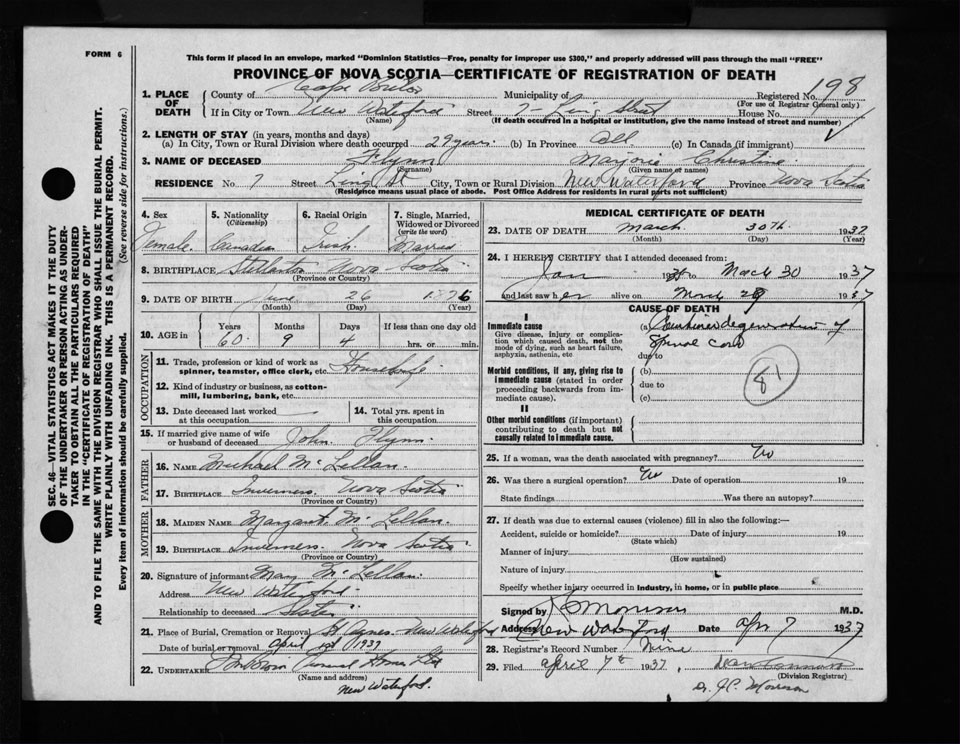 FORM 6
This form if placed in an envelope, marked "Dominion Statistics—Free, penalty for improper use $300," and properly addressed will pass through the mail "FREE"
PROVINCE OF NOVA SCOTIA—CERTIFICATE OF REGISTRATION OF DEATH
198
1. PLACE OF DEATH
County of Cape Breton Municipality of Registered No.
(For use of Registrar General only)
If in City or Town New Waterford Street 7- Ling Street House No.
(Name) (If death occurred in a hospital or institution, give the name instead of street and number)
2. LENGTH OF STAY (in years, months and days)
(a) In City, Town or Rural Division where death occurred 29 years. (b) In Province All (c) In Canada (if immigrant)
3. NAME OF DECEASED Flynn Marjorie Christine
(Surname) (Given name or names)
RESIDENCE No. 7 Street Ling St City, Town or Rural Division New Waterford Province Nova Scotia
(Residence means usual place of abode. Post Office Address for residents in rural parts not sufficient)
4. Sex Female
5. Nationality (Citizenship) Canadian
6. Racial Origin Irish
7. Single, Married, Widowed or Divorced (write the word) Married
8. BIRTHPLACE Stellarton Nova Scotia
(Province or Country)
9. DATE OF BIRTH June 26 1876
(Month) (Day) (Year)
10. AGE in Years Months Days If less than one day old
60 9 4 hrs. or min.
OCCUPATION
11. Trade, profession or kind of work as spinner, teamster, office clerk, etc. Housewife
12. Kind of industry or business, as cotton-mill, lumbering, bank, etc.
13. Date deceased last worked at this occupation
14. Total yrs. spent in this occupation
15. If married give name of wife or husband of deceased John Flynn.
FATHER
16. NAME Michael McLellan.
17. BIRTHPLACE Inverness. Nova Scotia
(Province or Country)
MOTHER
18. MAIDEN NAME Margaret McLellan.
19. BIRTHPLACE Inverness. Nova Scotia
(Province or Country)
20. Signature of informant Mary McLellan.
Address New Waterford.
Relationship to deceased Sister
21. Place of Burial, Cremation or Removal St Agnes - New Waterford
Date of burial or removal April 1st 1937
22. UNDERTAKER Funeral Home Ltd
(Name and address)
New Waterford.
MEDICAL CERTIFICATE OF DEATH
23. DATE OF DEATH March 30th 1937
(Month) (Day) (Year)
24. I HEREBY CERTIFY that I attended deceased from:
Jan 193 to March 30 1937
and last saw her alive on March 29 1937
CAUSE OF DEATH
I
Immediate cause
Give disease, injury or complication which caused death, not the mode of dying, such as heart failure, asphyxia, asthenia, etc
(a) Combined degeneration of
Spinal cord
due to
Morbid conditions, if any, giving rise to immediate cause (stated in order proceeding backwards from immediate cause).
(b)
due to
(c)
81
II
Other morbid conditions (if important) contributing to death but not causally related to immediate cause.
25. If a woman, was the death associated with pregnancy? No
26. Was there a surgical operation? No Date of operation 19
State findings Was there an autopsy?
27. If death was due to external causes (violence) fill in also the following:—
Accident, suicide or homicide? Date of injury 19
(State which)
Manner of injury
(How sustained)
Nature of injury
Specify whether injury occurred in Industry, in home, or in public place
Signed by Morrison M.D.
Address New Waterford Date Apr 7 1937
28. Registrar's Record Number Nine
29. Filed April 7th 1937.
(Division Registrar)
Dr. J.P. Morrison
SEC. 46—VITAL STATISTICS ACT MAKES IT THE DUTY
OF THE UNDERTAKER OR PERSON ACTING AS UNDER-
TAKER TO OBTAIN ALL THE PARTICULARS REQUIRED
IN THE "CERTIFICATE OF REGISTRATION OF DEATH"
AND TO FILE THE SAME WITH THE DIVISION REGISTRAR WHO SHALL ISSUE THE BURIAL PERMIT.
WRITE PLAINLY WITH UNFADING INK. THIS IS A PERMANENT RECORD.
Every item of information should be carefully supplied. (See reverse side for instructions.)